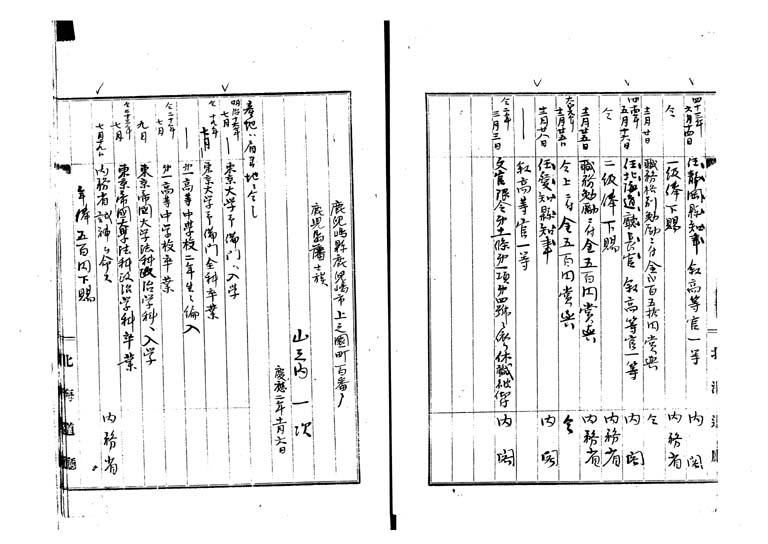 鹿児島縣鹿児島市上之園町百番戸
鹿児島藩士族
山之内一次
慶應二年十一月六日
明治十五年
七月
東京大学予備門ヘ入学
仝十九年
七月
東京大学予備門全科卒業
第一高等中学校二年生ニ編入
仝二十年
七月
第一高等中学校卒業
九月
東京帝國大学法科政治学科ヘ入学
仝二十三年
七月
東京帝國大学法科政治学科卒業
七月十九日
内務省試補ヲ命ス
内務省
年俸五百円下賜
北海道廳
四十二年
六月十四日
任静岡縣知事 叙高等官一等
内閣
仝
一級俸下賜
内務省
十二月廿日
職務格別勉励ニ付金
円賞與
仝
四十四年
五月十六日
任北海道廳長官 叙高等官一等
内閣
仝
二級俸下賜
内務省
十二月廿五日
職務勉励ニ付金五百円賞與
内務省
十二月廿五日
仝上ニ付金五百円賞與
仝
十二月廿八日
任愛知縣知事
内閣
叙高等官一等
仝二年
三月三日
文官
令第十一條第一項第四號ニ
休職
内閣
北海道廳